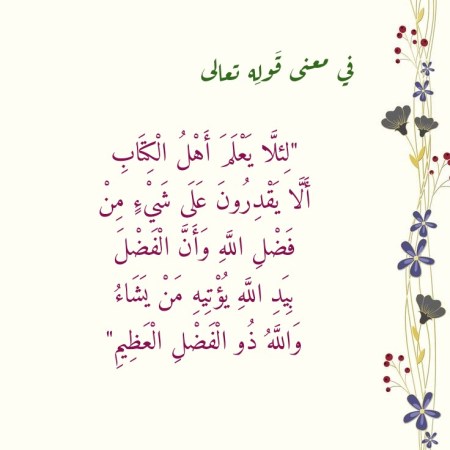 في معنى قَولِه تعالى
"لِئلَّا يَعْلَمَ أَهْلُ الْكِتَابِ
أَلَّا يَقْدِرُونَ عَلَى شَيْءٍ مِنْ
فَضْلِ اللَّهِ وَأَنَّ الْفَضْلَ
بِيَدِ اللَّهِ يُؤْتِيهِ مَنْ يَشَاءُ
وَاللَّهُ ذُو الْفَضْلِ الْعَظِيمِ"